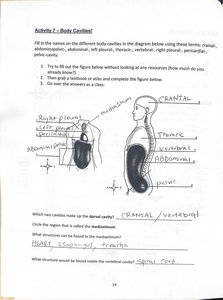 Activity 7 – Body Cavities!
Fill in the names on the different body cavities in the diagram below using these terms: cranial,
abdominopelvic, abdominal, left pleural, thoracic, vertebral, right pleural, pericardial,
pelvic cavity.
1. Try to fill out the figure below without looking at any resources (how much do you
already know?)
2. Then grab a textbook or atlas and complete the figure below.
3. Go over the answers as a class.
mediastinum
CRANIAL
Right pleural
Left pleural
pericardial
Thoracic
vertebral
Abdominal
pelvic
Which two cavities make up the dorsal cavity? CRANIAL / vertebral
Circle the region that is called the mediastinum.
What structures can be found in the mediastinum?
HEART, esophagus, trachea
What structure would be found inside the vertebral cavity? spinal cord
14